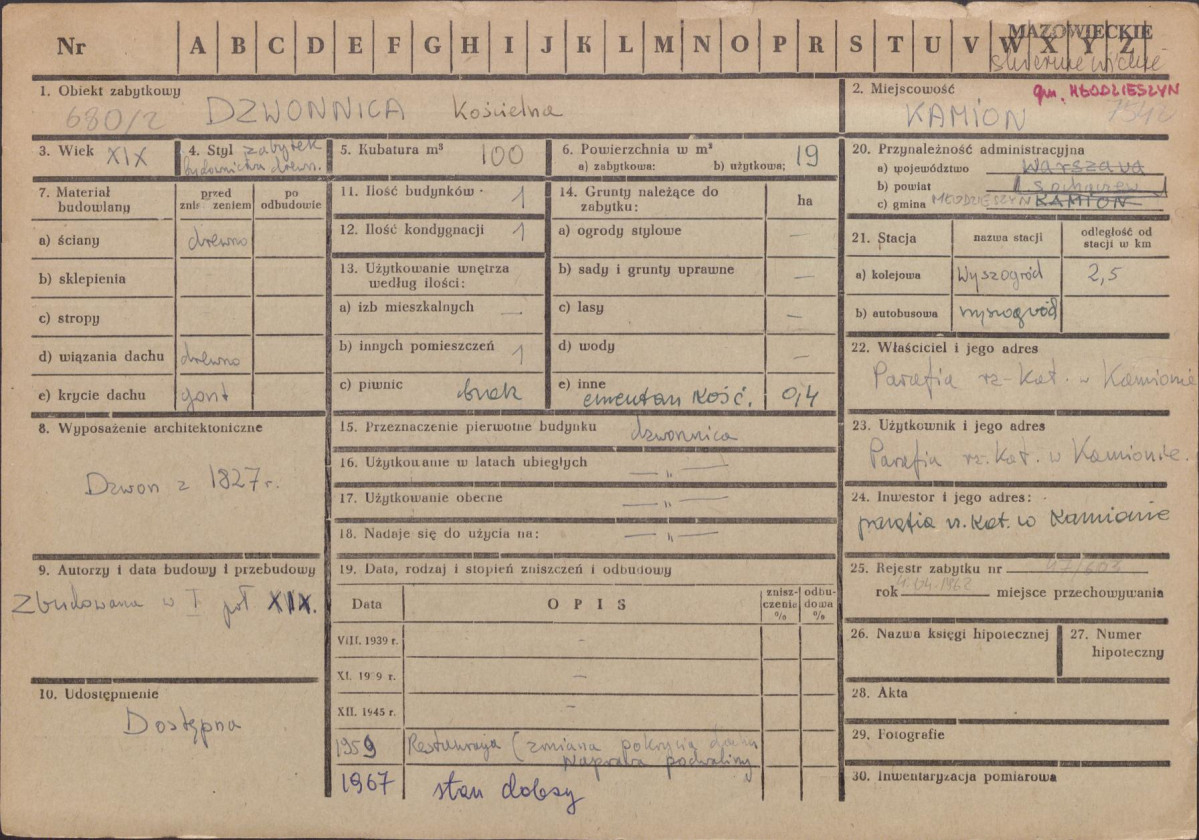 Nr A B C D E F G H I J K L M N O P R S T U V W X Y Z
MAZOWIECKIE
skierniewickie
1. Obiekt zabytkowy
680/2 DZWONNICA Kościelna
2. Miejscowość
gm. MŁODZIESZYN
KAMION 7542
3. Wiek XIX
4. Styl zabytek
budownictwa drewn.
5. Kubatura m³ 100
6. Powierzchnia w m²
a) zabytkowa: b) użytkowa: 19
7. Materiał budowlany
przed zniszczeniem
po odbudowie
a) ściany drewno
b) sklepienia
c) stropy
d) wiązania dachu drewno
e) krycie dachu gont
8. Wyposażenie architektoniczne
Dzwon z 1827 r.
9. Autorzy i data budowy i przebudowy
Zbudowana w I poł XIX.
10. Udostępnienie
Dostępna
11. Ilość budynków 1
12. Ilość kondygnacji 1
13. Użytkowanie wnętrza
według ilości:
a) izb mieszkalnych —
b) innych pomieszczeń 1
c) piwnic brak
14. Grunty należące do
zabytku:
ha
a) ogrody stylowe —
b) sady i grunty uprawne —
c) lasy —
d) wody —
e) inne
cmentarz Kość. 0,4
15. Przeznaczenie pierwotne budynku dzwonnica
16. Użytkowanie w latach ubiegłych — „ —
17. Użytkowanie obecne — „ —
18. Nadaje się do użycia na: — „ —
19. Data, rodzaj i stopień zniszczeń i odbudowy
Data OPIS
znisz-
czenie
%
odbu-
dowa
%
VIII. 1939 r. —
XI. 19 9 r. —
XII. 1945 r. —
1959 Restauracja (zmiana pokrycia dachu
naprawa podwaliny
1967 stan dobry
20. Przynależność administracyjna
a) województwo Warszawa
b) powiat Sochaczew
c) gmina MŁODZIESZYN KAMION
21. Stacja
nazwa stacji
odległość od
stacji w km
a) kolejowa Wyszogród 2,5
b) autobusowa Wyszogród
22. Właściciel i jego adres
Parafia rz-kat. w Kamionie
23. Użytkownik i jego adres
Parafia rz.kat. w Kamionie.
24. Inwestor i jego adres:
parafia rz. kat. w Kamionie
25. Rejestr zabytku nr 47/603
rok 4.04.1962 miejsce przechowywania
26. Nazwa księgi hipotecznej
27. Numer
hipoteczny
28. Akta
29. Fotografie
30. Inwentaryzacja pomiarowa